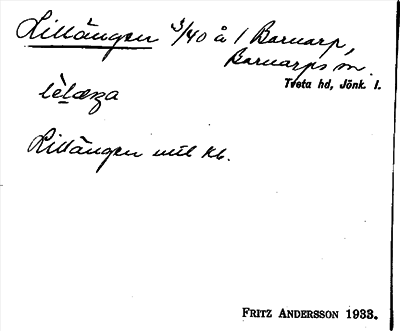 Lillängen 3/40 å 1 Barnarp,
Barnarps sn.
Tveta hd, Jönk. l.
Lillängen utl kb.
FRITZ ANDERSSON 1933.